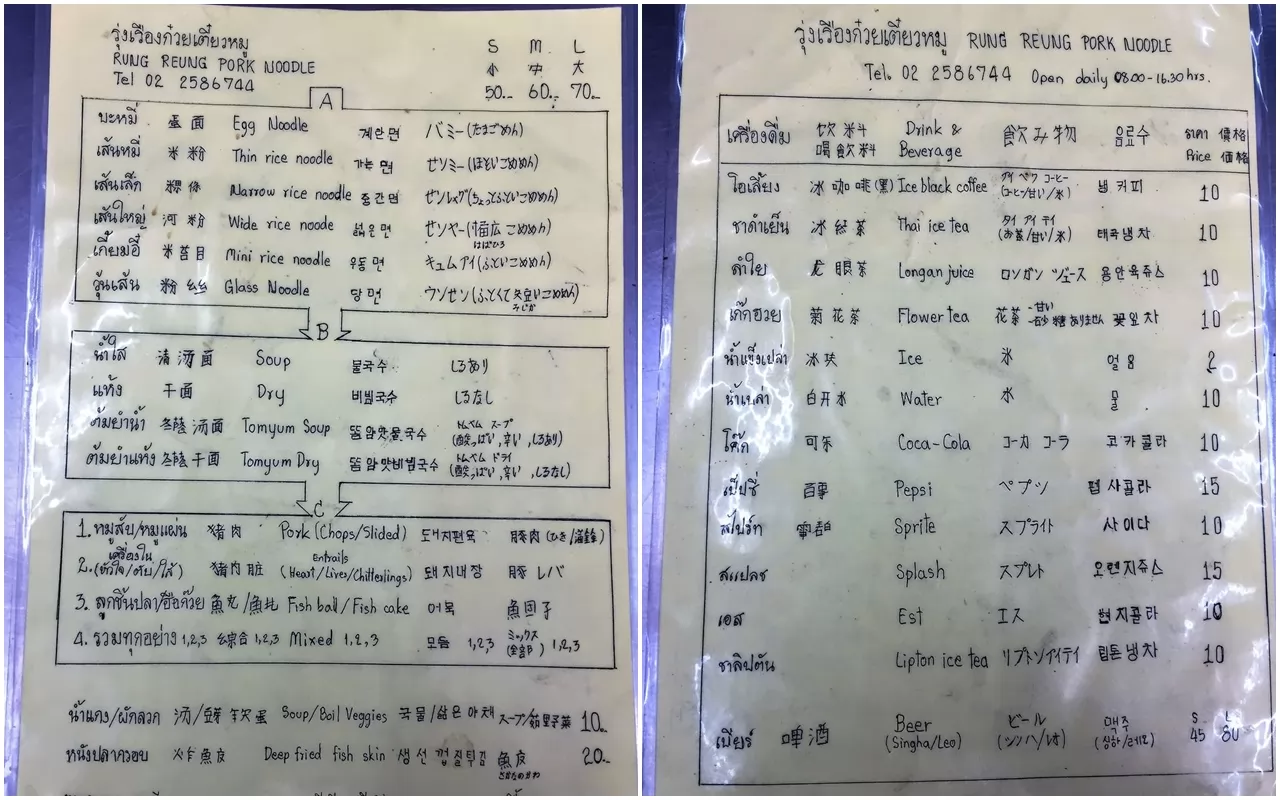 รุ่งเรืองก๋วยเตี๋ยวหมู
RUNG REUNG PORK NOODLE
Tel 02 2586744
S M. L
小 中 大
50.- 60.- 70.-
A
บะหมี่ 蛋面 Egg Noodle 계란면 バミー(たまごめん)
เส้นหมี่ 米粉 Thin rice noodle 가는면 センミー(ほそいこめめん)
เส้นเล็ก 粿条 Narrow rice noodle 중간면 センレック(ちょっとふといこめめん)
เส้นใหญ่ 河粉 Wide rice noode 넓은면 センヤー(幅広こめめん)
はばひろ
เกี้ยมอี๋ 米苔目 Mini rice noodle 우동면 キュムアイ(ふといこめめん)
วุ้นเส้น 粉丝 Glass Noodle 당면 ウンセン
B
น้ำใส 清汤面 Soup 물국수 しるあり
แห้ง 干面 Dry 비빔국수 しるなし
ต้มยำน้ำ 冬蔭汤面 Tomyum Soup 똠얌맛물국수 トムヤム スープ
(酸っぱい,辛い,しるあり)
ต้มยำแห้ง 冬蔭干面 Tomyum Dry 똠얌맛비빔국수 トムヤム ドライ
(酸っぱい,辛い,しるなし)
C
1. หมูสับ/หมูแผ่น 猪肉 Pork (Chops/Slided) 돼지편육 豚肉
2. เครื่องใน
(หัวใจ/ตับ/ไส้) 猪肉脏 Entrails
(Heart/Lives/Chitterlings) 돼지내장 豚レバ
3. ลูกชิ้นปลา/ฮือก๊วย 魚丸/魚 Fish ball/Fish cake 어묵 魚団子
4. รวมทุกอย่าง 1,2,3 綜合 1,2,3 Mixed 1,2,3 모듬 1,2,3 ミックス
(全部) 1,2,3
น้ำแกง/ผักลวก 汤/ Soup/Boil Veggies 국물/삶은야채 スープ/ 10.-
หนังปลากรอบ 炸魚皮 Deep fried fish skin 생선껍질튀김 魚皮 20.-
さかなのかわ
รุ่งเรืองก๋วยเตี๋ยวหมู RUNG REUNG PORK NOODLE
Tel. 02 2586744 Open daily 08.00-16.30 hrs.
เครื่องดื่ม 饮料 Drink & 飲み物 음료수 ราคา 價格
喝飲料 Beverage Price 価格
โอเลี้ยง 冰咖啡(黑) Ice black coffee 냉커피 10
(コーヒー/甘い/氷)
ชาดำเย็น 冰红茶 Thai ice tea タイ アイ ティ 태국냉차 10
(お茶/甘い/氷)
ลำใย 龙眼茶 Longan juice ロンガン ジュース 용안육쥬스 10
เก๊กฮวย 菊花茶 Flower tea 花茶 -甘い 꽃잎차 10
-砂糖ありません
น้ำแข็งเปล่า 冰块 Ice 氷 얼음 2
น้ำเปล่า 白开水 Water 水 물 10
โค๊ก 可乐 Coca-Cola コーカ コーラ 코카콜라 10
เป๊ปซี่ 百事 Pepsi ペプツ 펩사콜라 15
สไปร์ท Sprite スプライト 사이다 10
สแปลช Splash スプレト 오렌지쥬스 15
เอส Est エス 현지콜라 10
ชาลิปตัน Lipton ice tea リプトンアイテイ 립톤냉차 10
เบียร์ 啤酒 Beer ビール 맥주 S. L.
(Singha/Leo) (シンハ/レオ) (싱하/레오) 45 80